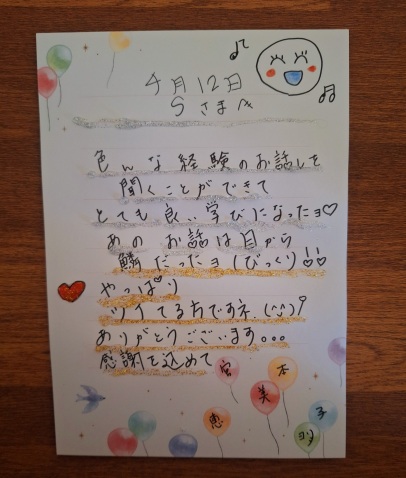 4月12日
Sさまへ
色んな経験のお話しを
聞くことができて
とても良い学びになったョ♡
あの お話は目から
鱗だったョ(びっくり)!!
やっぱり
ツイてる方ですネ.(^^)
ありがとうございます。。。
感謝を込めて
宮本
恵美子